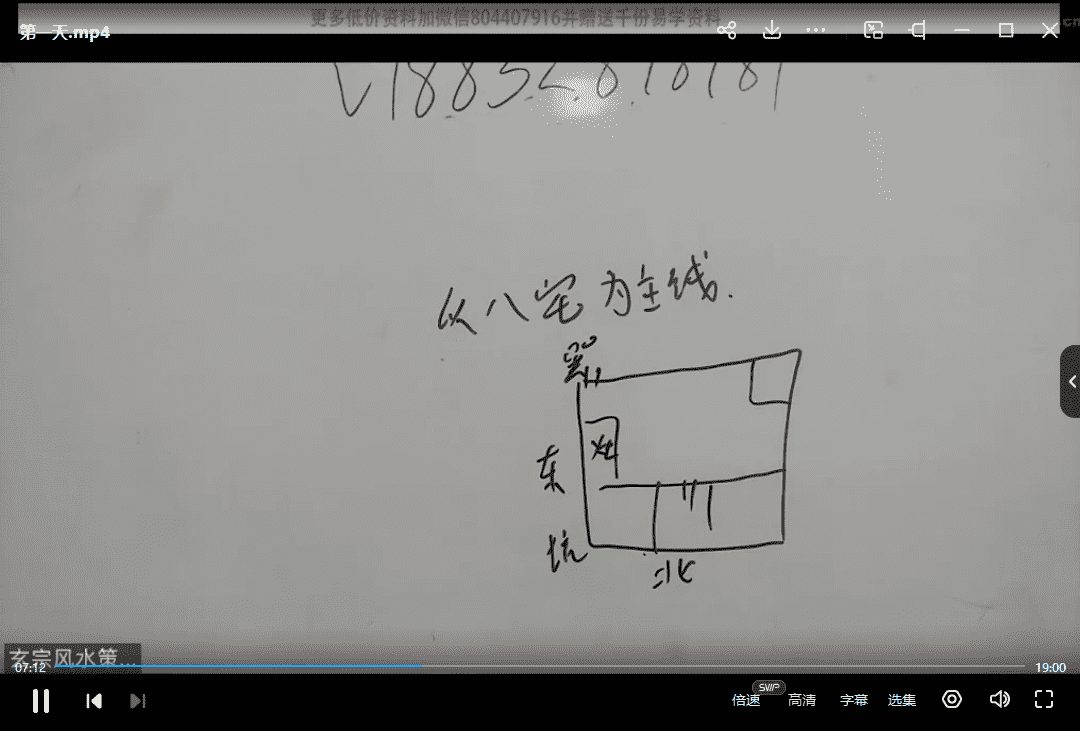 更多低价资料加微信804407916并赠送千份易学资料
第一天.mp4
从八宅为主线.
巽
灶
东
坑
北
玄宗风水策...
07:12
19:00
SVIP
倍速
高清
字幕
选集